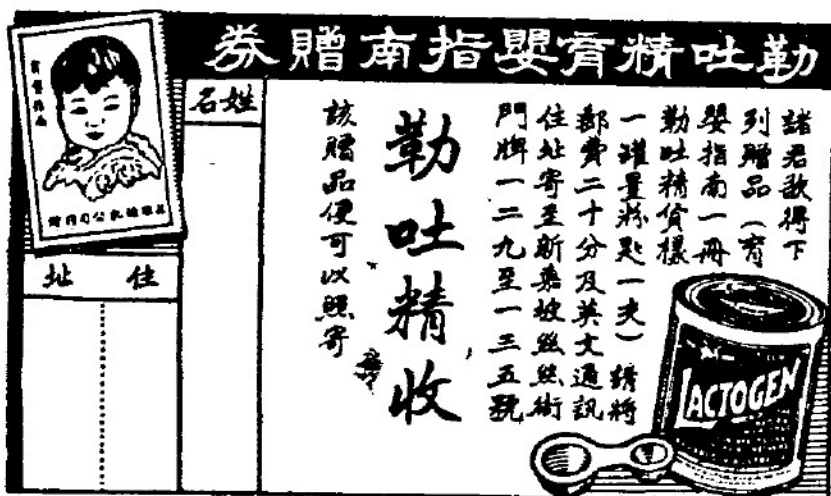 勒吐精育嬰指南贈券
諸君欲得下
列贈品（育
嬰指南一冊
勒吐精貨樣
一罐量粉匙一支）請將
郵費二十分及英文通訊
住址寄至新嘉坡絲絲街
門牌一二九至一三五號
勒吐精收
該贈品便可以照寄
姓名
住址
育嬰指南
LACTOGEN